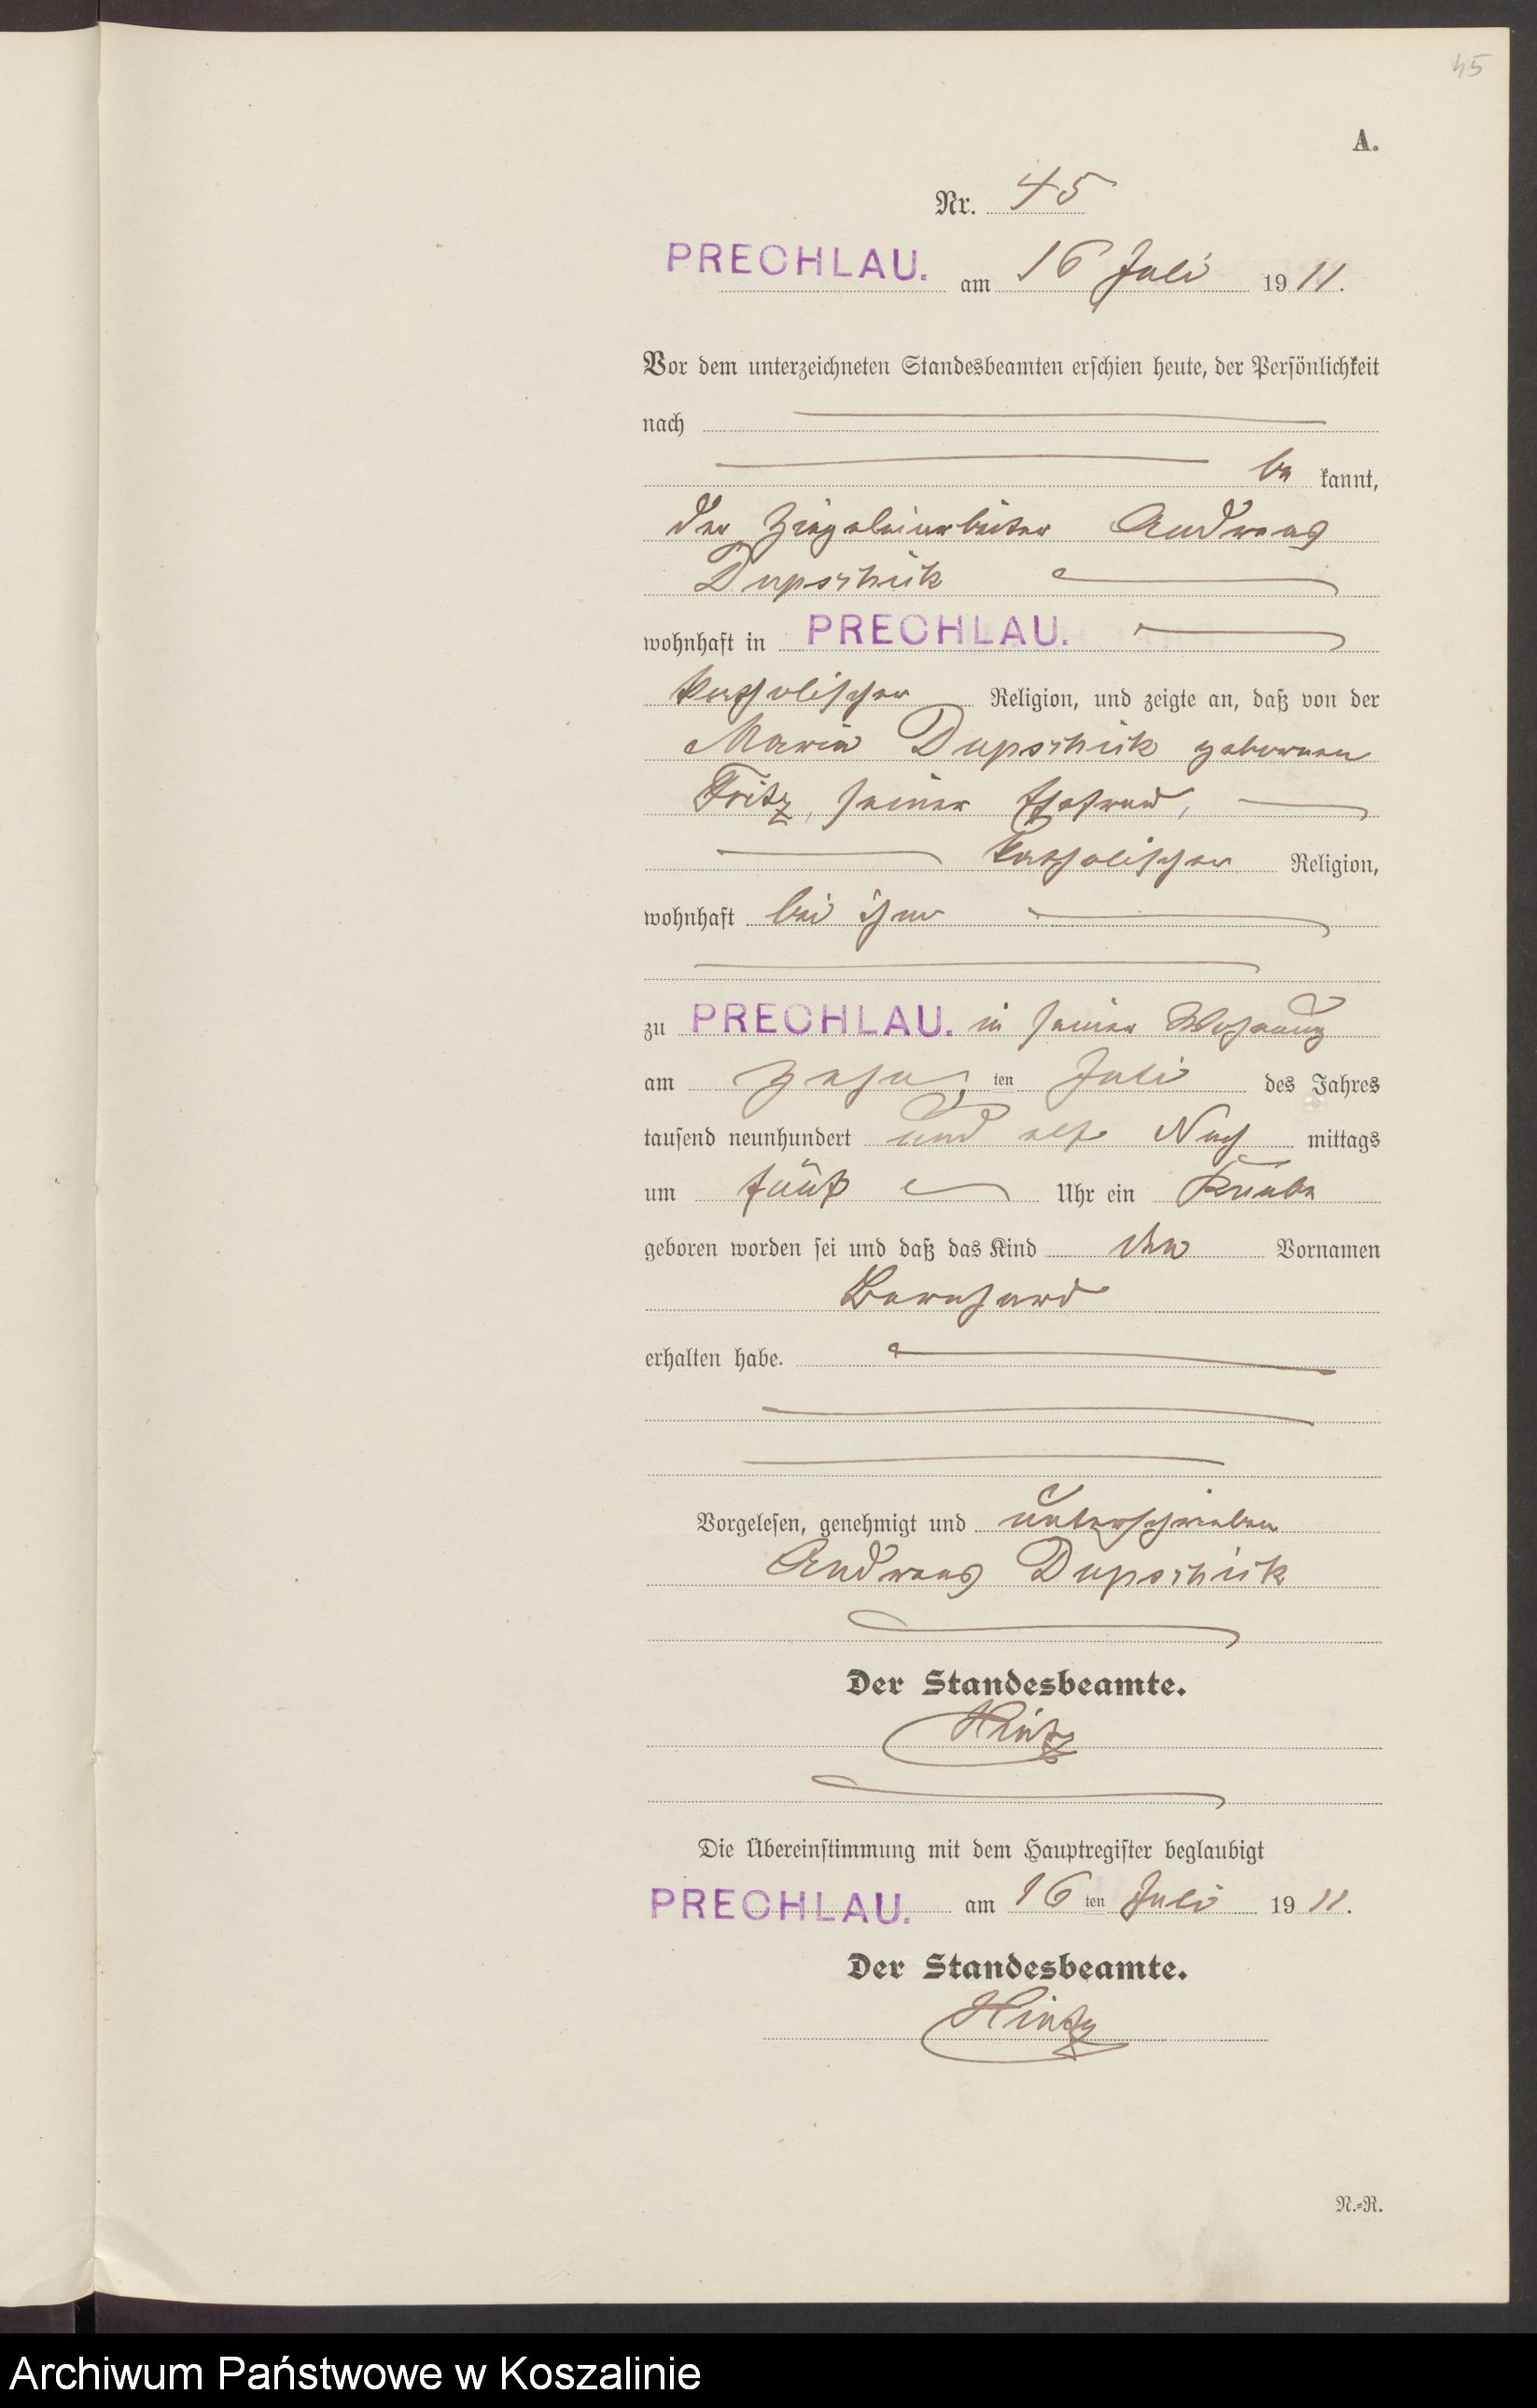 45
A.
Nr. 45
PRECHLAU. am 16 Juli 1911.
Vor dem unterzeichneten Standesbeamten erschien heute, der Persönlichkeit
nach
be kannt,
der Ziegeleiarbeiter Andreas
Dupschik
wohnhaft in PRECHLAU.
katholischer Religion, und zeigte an, daß von der
Maria Dupschik geborenen
Fritz, seiner Ehefrau,
katholischer Religion,
wohnhaft bei ihm
zu PRECHLAU. in seiner Wohnung
am zehn ten Juli des Jahres
tausend neunhundert und elf Nach mittags
um fünf Uhr ein Knabe
geboren worden sei und daß das Kind den Vornamen
Bernhard
erhalten habe.
Vorgelesen, genehmigt und unterschrieben
Andreas Dupschik
Der Standesbeamte.
Hintz
Die Übereinstimmung mit dem Hauptregister beglaubigt
PRECHLAU. am 16 ten Juli 1911.
Der Standesbeamte.
Hintz
N.-R.
Archiwum Państwowe w Koszalinie